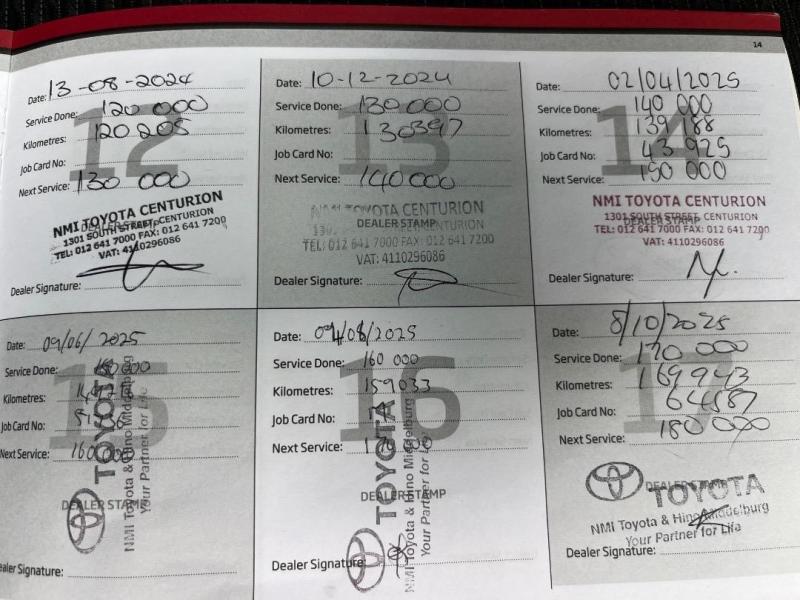 14
12
Date: 13-08-2024
Service Done: 120 000
Kilometres: 120 205
Job Card No:
Next Service: 130 000
DEALER STAMP
NMI TOYOTA CENTURION
1301 SOUTH STREET, CENTURION
TEL: 012 641 7000 FAX: 012 641 7200
VAT: 4110296086
Dealer Signature:
13
Date: 10-12-2024
Service Done: 130 000
Kilometres: 130397
Job Card No:
Next Service: 140000
NMI TOYOTA CENTURION
DEALER STAMP
CENTURION
TEL: 012 641 7000 FAX: 012 641 7200
VAT: 4110296086
Dealer Signature:
14
Date: 02/04/2025
Service Done: 140 000
Kilometres: 139 188
Job Card No: 43925
Next Service: 150 000
NMI TOYOTA CENTURION
1301 SOUTH STREET, CENTURION
DEALER STAMP
TEL: 012 641 7000 FAX: 012 641 7200
VAT: 4110296086
Dealer Signature:
15
Date: 09/06/2025
Service Done: 150 000
Kilometres:
Job Card No:
Next Service: 160 000
DEALER STAMP
TOYOTA
NMI Toyota & Hino Middelburg
Your Partner for Life
Dealer Signature:
16
Date: 09/08/2025
Service Done: 160 000
Kilometres: 159033
Job Card No:
Next Service:
DEALER STAMP
TOYOTA
NMI Toyota & Hino Middelburg
Your Partner for Life
Dealer Signature:
17
Date: 8/10/2025
Service Done: 170 000
Kilometres: 169943
Job Card No: 64587
Next Service: 180 000
DEALER STAMP
TOYOTA
NMI Toyota & Hino Middelburg
Your Partner for Life
Dealer Signature: